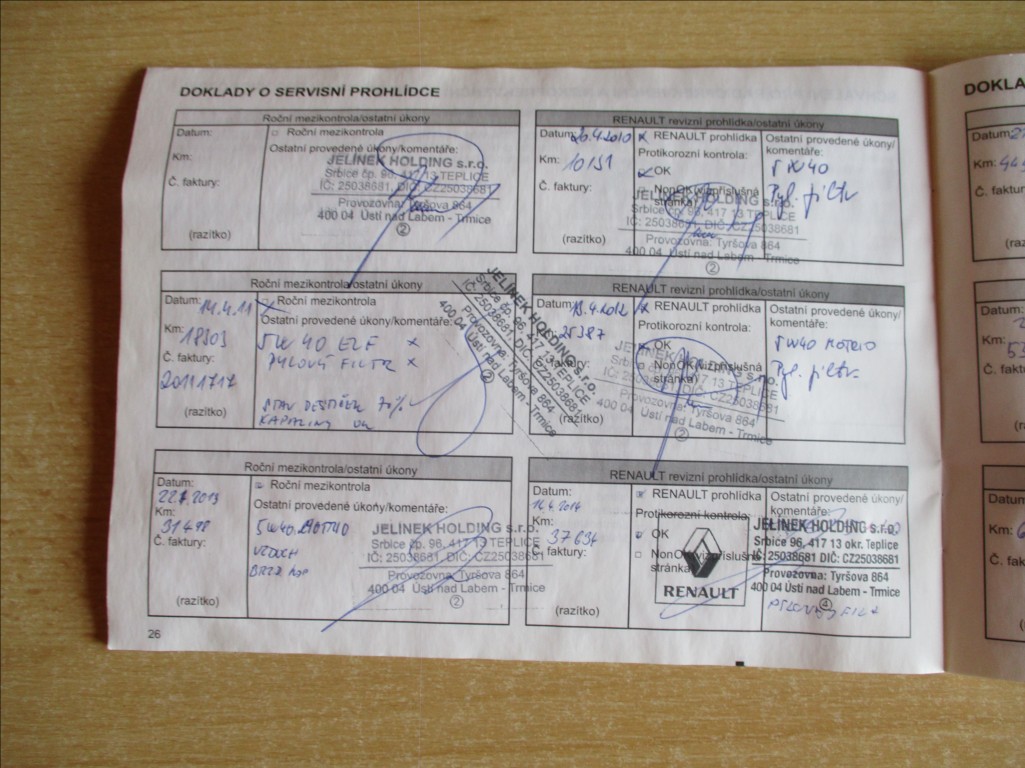 DOKLADY O SERVISNÍ PROHLÍDCE
Roční mezikontrola/ostatní úkony
Datum:
Roční mezikontrola
Km:
Ostatní provedené úkony/komentáře:
Č. faktury:
(razítko)
JELÍNEK HOLDING s.r.o.
Srbice čp. 96, 417 13 TEPLICE
IČ: 25038681, DIČ: CZ25038681
Provozovna: Tyršova 864
400 04 Ústí nad Labem - Trmice
2
RENAULT revizní prohlídka/ostatní úkony
Datum: 20.4.2010
Km: 10151
Č. faktury:
(razítko)
RENAULT prohlídka
Protikorozní kontrola:
OK
NonOK(viz příslušná
stránka)
Ostatní provedené úkony/
komentáře:
5W40
Pyl. filtr
JELÍNEK HOLDING s.r.o.
Srbice čp. 96, 417 13 TEPLICE
IČ: 25038681, DIČ: CZ25038681
Provozovna: Tyršova 864
400 04 Ústí nad Labem - Trmice
2
Roční mezikontrola/ostatní úkony
Datum: 14.4.11
Roční mezikontrola
Km: 18303
Ostatní provedené úkony/komentáře:
5W40 ELF x
PYLOVÝ FILTR x
Č. faktury:
(razítko)
STAV DESTIČEK 70%
KAPALINY OK
JELÍNEK HOLDING s.r.o.
Srbice čp. 96, 417 13 TEPLICE
IČ: 25038681, DIČ: CZ25038681
Provozovna: Tyršova 864
400 04 Ústí nad Labem - Trmice
2
RENAULT revizní prohlídka/ostatní úkony
Datum: 18.4.2012
25387
(razítko)
RENAULT prohlídka
Protikorozní kontrola:
OK
NonOK(viz příslušná
stránka)
Ostatní provedené úkony/
komentáře:
5W40 MOTRIO
Pyl. filtr
JELÍNEK HOLDING s.r.o.
Srbice čp. 96, 417 13 TEPLICE
IČ: 25038681, DIČ: CZ25038681
Provozovna: Tyršova 864
400 04 Ústí nad Labem - Trmice
2
Roční mezikontrola/ostatní úkony
Datum:
Roční mezikontrola
Km: 31498
Ostatní provedené úkony/komentáře:
5W40 MOTRIO
Č. faktury:
VZDUCH
(razítko)
JELÍNEK HOLDING s.r.o.
Srbice čp. 96, 417 13 TEPLICE
IČ: 25038681 DIČ: CZ25038681
Provozovna: Tyršova 864
400 04 Ústí nad Labem - Trmice
2
RENAULT revizní prohlídka/ostatní úkony
Datum:
Km: 37634
Č. faktury:
(razítko)
RENAULT prohlídka
Protikorozní kontrola:
OK
NonOK(viz příslušná
stránka)
Ostatní provedené úkony/
komentáře:
RENAULT
JELÍNEK HOLDING s.r.o.
Srbice 96, 417 13 okr. Teplice
IČ: 25038681 DIČ: CZ25038681
Provozovna: Tyršova 864
400 04 Ústí nad Labem - Trmice
4
26
DOKLA
Datum:
Km:
Č. faktur
(raz
Datum:
Km:
Č. fakt
Datum
Km:
Č. fak